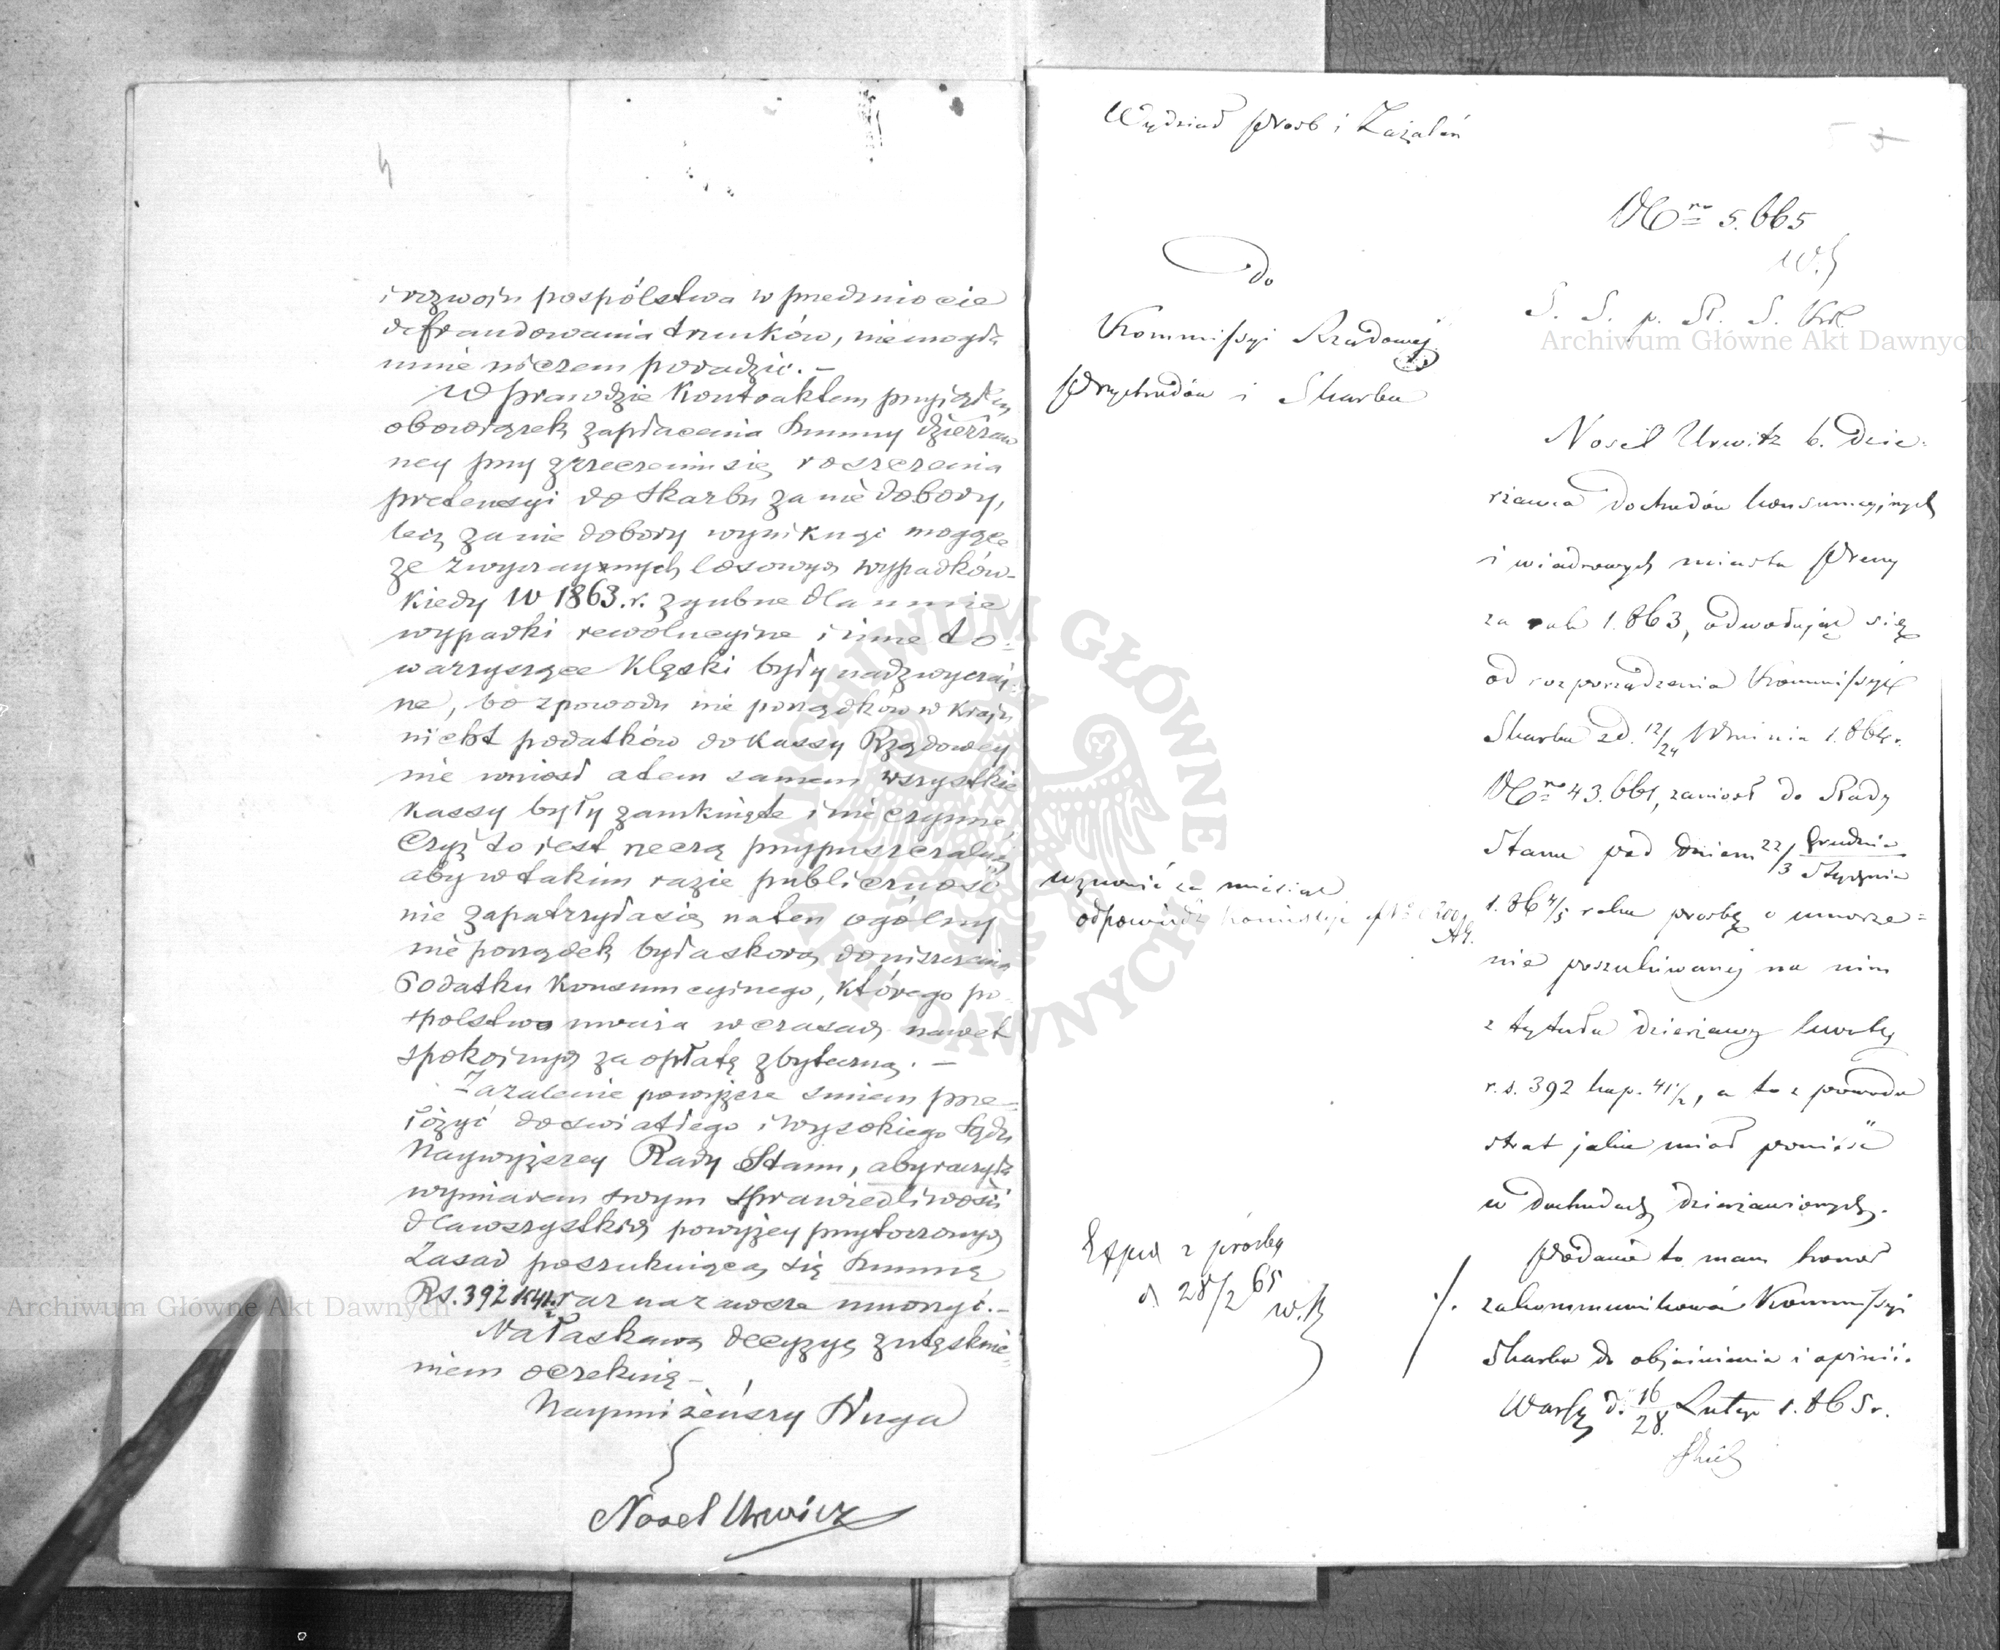 4
i rozwoju pospólstwa w przedmiocie
defraudowania trunków, niemogła
mnie niczem poradzić. –
W prawdzie Kontraktem przyjąłem
obowiązek zapłacenia Summy dzierżaw
ney przy zrzeczeniu się roszczenia
pretensyi do Skarbu za nie dobory,
lecz za nie dobory wyniknąć mogące
ze zwyczaynych losowych wypadków
Kiedy w 1863.r. zgubne dla mnie
wypadki rewolucyine i inne to=
warzyszące Klęski były nadzwyczaj=
ne, bo z powodu nie porządków w Kraju
nicht podatków do Kassy Rządowey
nie wniosł a tem samem wszystkie
Kassy były zamknięte i nie czynne,
Czyż to jest rzeczą przypuszczalną
aby w takim razie publiczność
nie zapatrzyła się na ten ogólny
nie porządek była skorą do niszczenia
Podatku Konsumcyinego, którego po=
spolstwo uważa w czasach nawet
spokojnych za opłatę zbyteczną. –
Zażalenie powyższe smiem prze=
łożyć do swiatłego i wysokiego Sądu
Naywyższey Rady Stanu, aby raczyła
wymiarem swym sprawiedliwości
dla wszystkich powyżey przytoczonych
Zasad poszukującą się Summę
Rs. 392 K 41½ raz na zawsze umorzyć. –
Na łaskawą decyzyę z utęsknie=
niem oczekuię –
Nayuniżeńszy Sługa
Nosel Urwicz
Wydział Prośb i Zażaleń
Do
Kommissyi Rządowej
Przychodów i Skarbu
Nro 5.665
S. S. p. R. S. Kr.
Nosel Urwitz b. dzie=
rżawca dochodów konsumcyjnych
i wiadrowych miasta Preny
za rok 1.863, odwołując się
od rozporządzenia Kommissyi
Skarbu z d. 12/24 Września 1.864 r.
Nro 43.661, zaniosł do Rady
Stanu pod dniem 22/3 Grudnia/Stycznia
1.864/5 roku prośbę o umorze=
nie poszukiwanej na nim
z tytułu dzierżawy kwoty
r.s. 392 kop. 41½, a to z powodu
strat jakie miał ponieść
w dochodach dzierżawionych.
Podanie to mam honor
zakommunikować Kommissyi
Skarbu do objaśnienia i opinii.
Warsz. d. 16/28 Lutego 1.865 r.
wznowić za miesiąc
odpowiedź Komissyi
z prośbą
d 28/2 65
Archiwum Główne Akt Dawnych
Archiwum Główne Akt Dawnych
ARCHIWUM GŁÓWNE AKT DAWNYCH